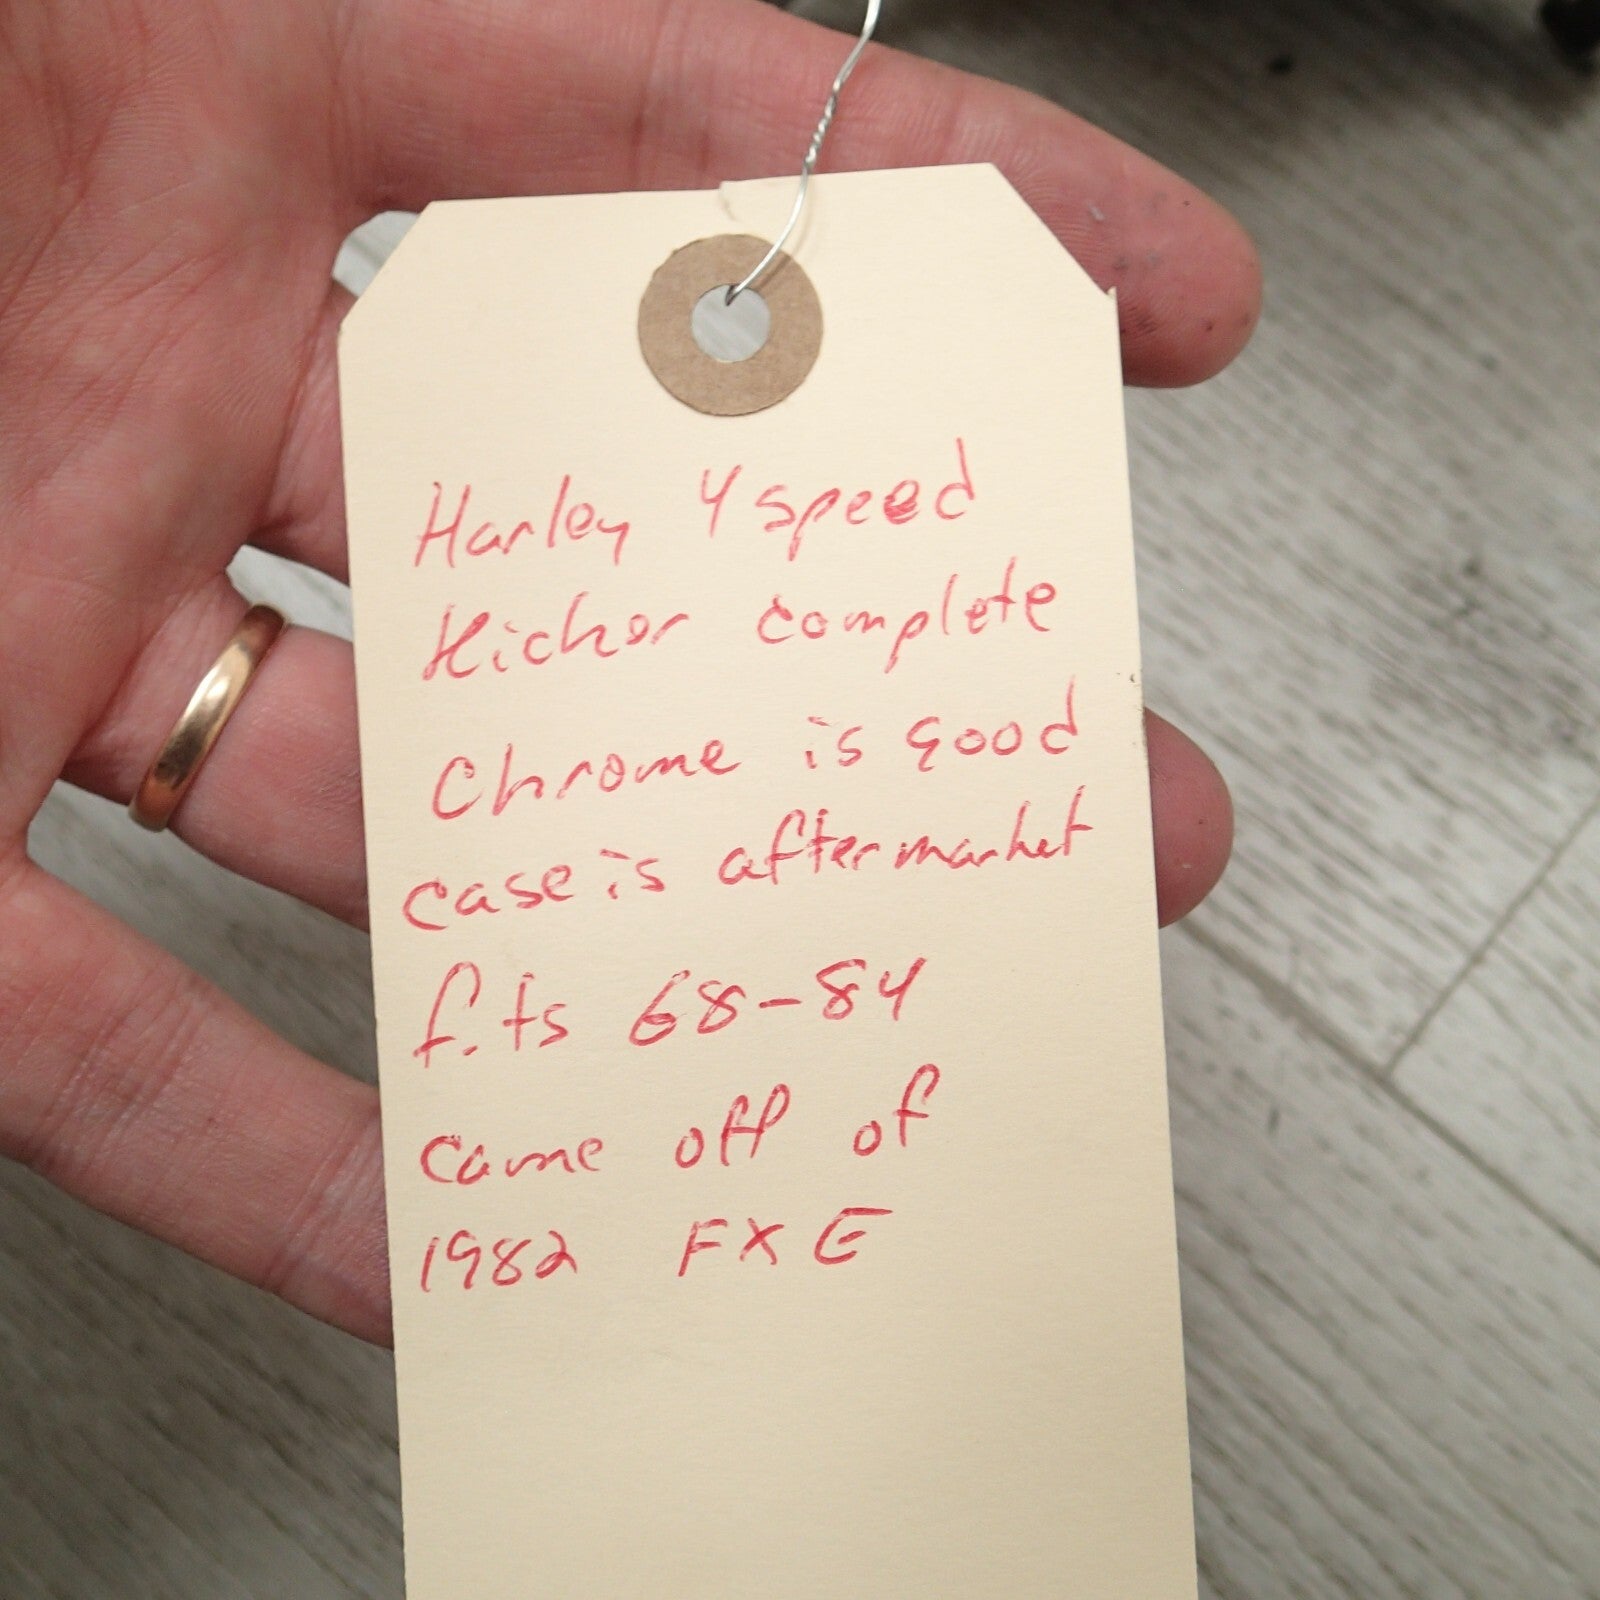 Harley 4 speed
Kicker complete
Chrome is good
case is aftermarket
fits 68-84
came off of
1982 FXE